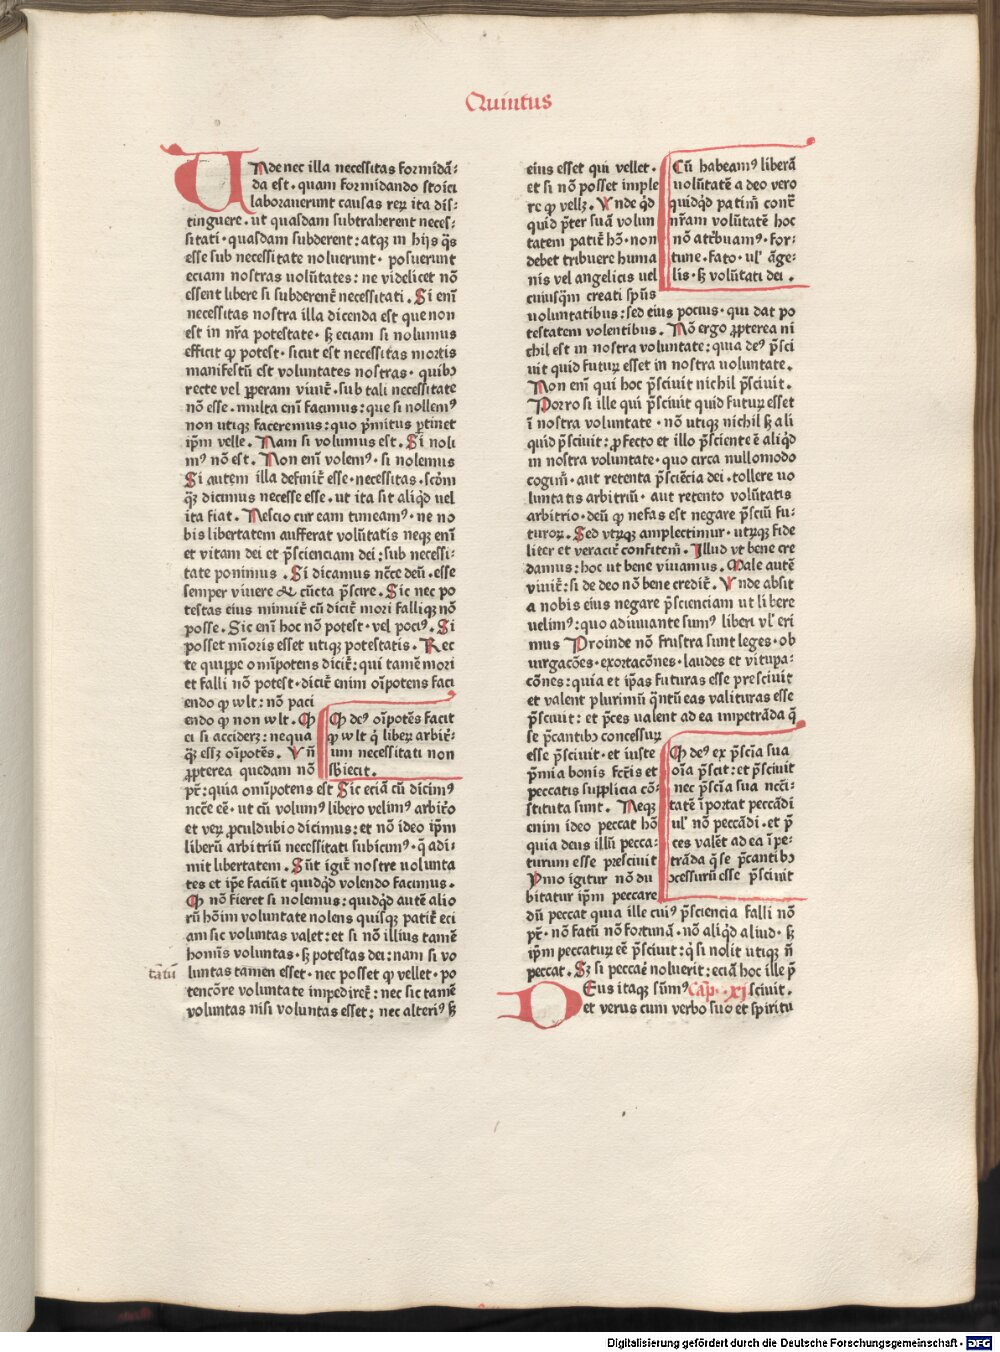 Quintus
UNde nec illa necessitas formidā-
da est · quam formidando stoici
laborauerunt causas reꝝ ita dis-
tinguere · ut quasdam subtraherent neces-
sitati · quasdam subderent : atqꝫ in hijs q̄s
esse sub necessitate noluerunt · posuerunt
eciam nostras uolūtates : ne videlicet nō
essent libere si subderent᷑ necessitati . Si enī
necessitas nostra illa dicenda est que non
est in nr̄a potestate · sꝫ eciam si nolumus
efficit ꝙ potest · sicut est necessitas mortis
manifestū est voluntates nostras · quibꝰ
recte vel ꝑperam viuit᷑ · sub tali necessitate
nō esse · multa enī facimus : que si nollemꝰ
non utiqꝫ faceremus : quo p̄mitus ꝑtinet
ip̄m velle . Nam si volumus est . Si noli
mꝰ nō est . Non enī volemꝰ · si nolemus
Si autem illa definit᷑ esse · necessitas · scd̄m
qꝫ dicimus necesse esse · ut ita sit aliqd̄ uel
ita fiat . Nescio cur eam timeamꝰ · ne no
bis libertatem aufferat volūtatis neqꝫ enī
et vitam dei et p̄scienciam dei : sub necessi-
tate ponimus . Si dicamus ncc̄e deū · esse
semper viuere ⁊ cūcta p̄scire . Sic nec po
testas eius minuit᷑ cū dicit᷑ mori falliqꝫ nō
posse . Sic enī hoc nō potest · vel pociꝰ . Si
posset mīoris esset utiqꝫ potestatis . Rec
te quippe omīpotens dicit᷑ : qui tamē mori
et falli nō potest · dicit᷑ enim oīpotens faci
endo ꝙ wlt : nō paci
endo ꝙ non wlt . Ꝙ
ci si acciderꝫ : nequa
qꝫ essꝫ oīpotēs . Vn̄
ꝓpterea quedam nō
Ꝙ deꝰ oīpotēs facit
ꝙ wlt q̄ liberꝝ arbit᷑-
ium necessitati non
sb̄iecit .
pt᷑ : quia omīpotens est Sic eciā cū dicimꝰ
ncc̄e eē · ut cū volumꝰ libero velimꝰ arbit᷑o
et verꝝ ꝓculdubio dicimus : et nō ideo ip̄m
liberū arbitriū necessitati subicimꝰ · q̄ adi-
mit libertatem . Sūt igit᷑ nostre uolunta
tes et ip̄e faciūt quidqd̄ volendo facimus .
Ꝙ nō fieret si nolemus : quidqd̄ autē alio
rū hōim voluntate nolens quisqꝫ patit᷑ eci
am sic voluntas valet : et si nō illius tamē
homīs voluntas · sꝫ potestas dei : nam si vo
tātū
luntas tamen esset · nec posset ꝙ vellet · po
tencōre voluntate impediret᷑ : nec sic tamē
voluntas nisi voluntas esset : nec alteriꝰ sꝫ
eius esset qui vellet ·
et si nō posset imple
re ꝙ vellꝫ . Vnde qd̄
quid p̄ter suā volun
tatem patit᷑ hō · non
debet tribuere huma
nis vel angelicis uel
cuiusq̄m creati sp̄us
Cū habeamꝰ liberā
uolūtatē a deo vero
quidqd̄ patim᷑ contr̄
nr̄am volūtatē hoc
nō atr̄buamꝰ · for-
tune · fato · ul᷑ āge-
lis · sꝫ volūtati dei .
uoluntatibus : sed eius pocius · qui dat po
testatem volentibus . Nō ergo ꝓpterea ni
chil est in nostra voluntate : quia deꝰ p̄sci
uit quid futurꝝ esset in nostra uoluntate .
Non enī qui hoc p̄sciuit nichil p̄sciuit .
Porro si ille qui p̄sciuit quid futurꝝ esset
ī nostra voluntate · nō utiqꝫ nichil sꝫ ali
quid p̄sciuit : ꝓfecto et illo p̄sciente ē aliqd̄
in nostra voluntate · quo circa nullomodo
cogim᷑ · aut retenta p̄sciēcia dei · tollere uo
luntatis arbitriū · aut retento volūtatis
arbitrio · deū ꝙ nefas est negare p̄sciū fu-
turoꝝ . Sed vtrꝫqꝫ amplectimur · utrꝫqꝫ fide
liter et veracit᷑ confitem᷑ . Illud vt bene cre
damus : hoc ut bene viuamus . Male autē
viuit᷑ : si de deo nō bene credit᷑ . Vnde absit
a nobis eius negare p̄scienciam ut libere
uelimꝰ : quo adiuuante sumꝰ liberi vl᷑ eri
mus Proinde nō frustra sunt leges · ob
iurgacōes · exortacōnes · laudes et vitupa-
cōnes : quia et ip̄as futuras esse presciuit
et valent plurimū q̄ntū eas valituras esse
p̄sciuit : et p̄ces ualent ad ea impetrāda q̄
se p̄cantibꝰ concessurꝝ
esse p̄sciuit · et iuste
p̄mia bonis fct̄is et
peccatis supplicia cō-
stituta sunt . Neqꝫ
enim ideo peccat hō
quia deus illū pecca-
turum esse presciuit
Ymo igitur nō du
bitatur ip̄m peccare
Ꝙ deꝰ ex p̄scīa sua
oīa p̄scit : et p̄sciuit
nec p̄scīa sua ncc̄i-
tatē īportat peccādi
ul᷑ nō peccādi · et p̄
ces valēt ad ea īpe-
trāda q̄ se p̄cantibꝰ
ꝯcessurū esse p̄sciuit
dū peccat quia ille cuiꝰ p̄sciencia falli nō
pt᷑ · nō fatū nō fortunā · nō aliqd̄ aliud · sꝫ
ip̄m peccaturꝝ eē p̄sciuit : q̄ si nolit utiqꝫ n̄
peccat . Sꝫ si peccare noluerit : eciā hoc ille p̄
sciuit .
Cap̄ · xj
DEus itaqꝫ sūmꝰ
et verus cum verbo suo et spiritu
Digitalisierung gefördert durch die Deutsche Forschungsgemeinschaft - DFG